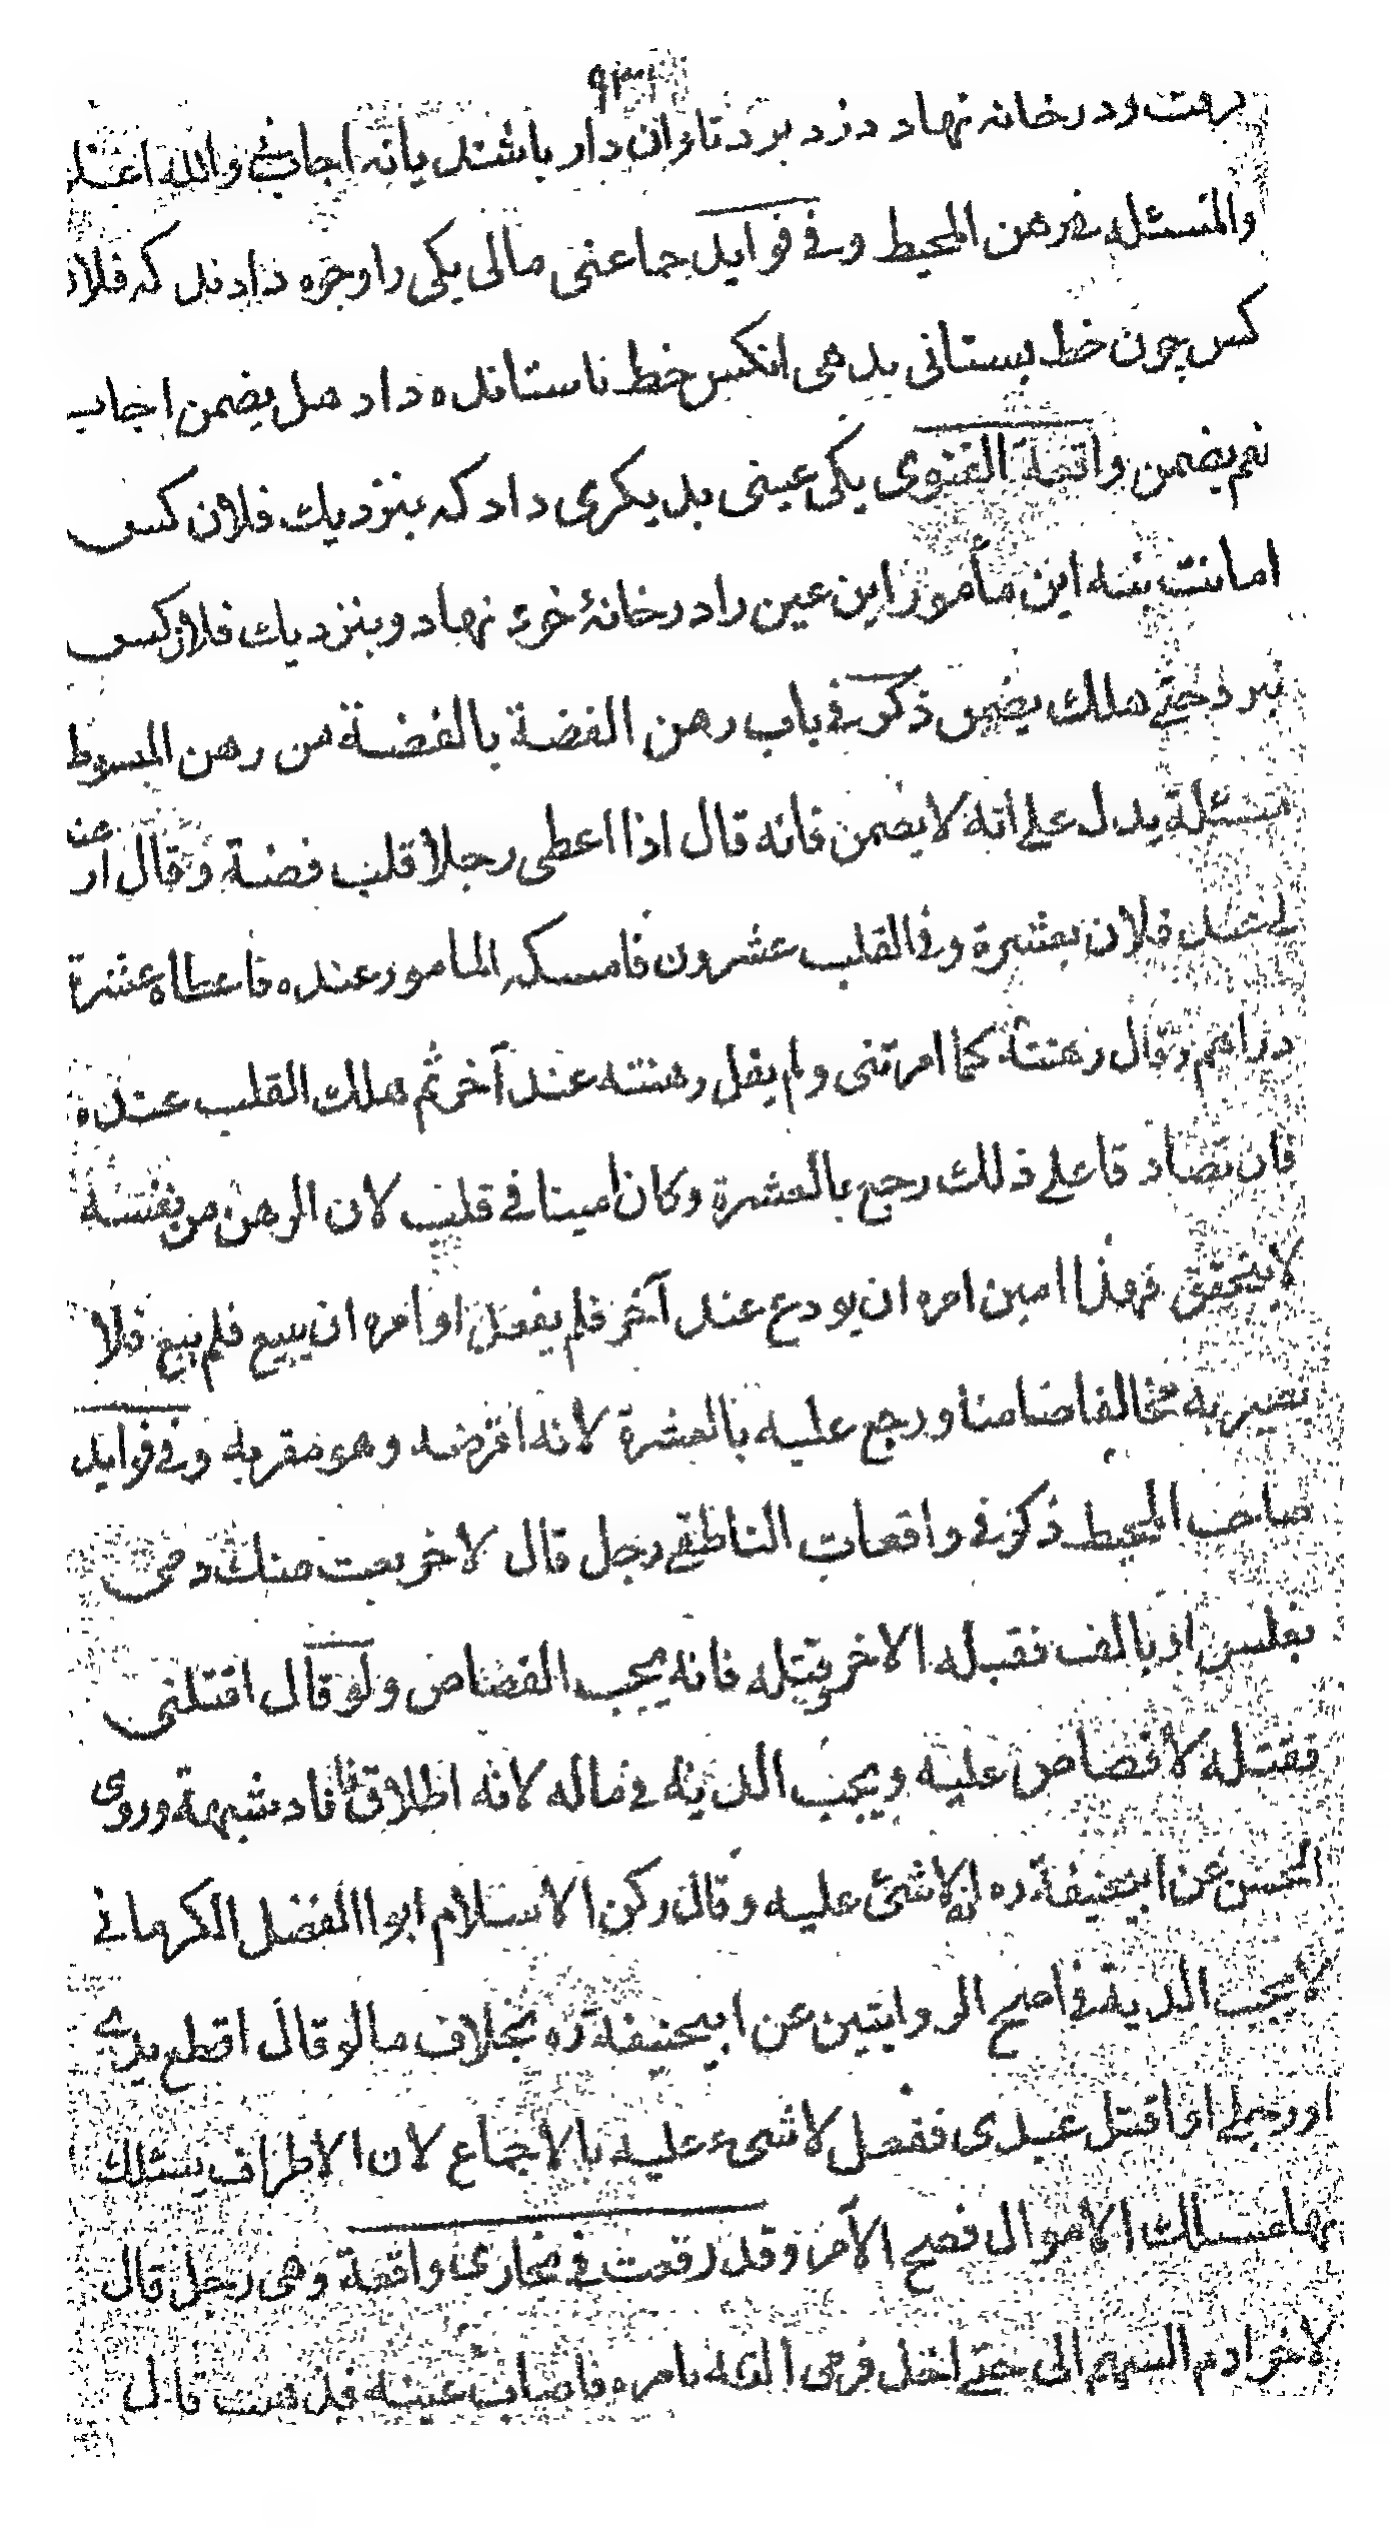 برفت ودر خانه نهاد دزد برد تاوان دار باشد يا نه اجاب والله اعلم
والمسئله فى رهن المحيط وفى فوايد جماعتى مالى يكى را وجره دادند كه فلان
كس چون خط بستانى بدهى انكس خط ناستانده داد هل يضمن اجاب
نعم يضمن واقعة الفتوى يكى عينى بديكرى داد كه بنزديك فلان كس
امانت بنه اين مأمور اين عين را در خانۀ خود نهاد وبنزديك فلان كس
نبرد حتى هلك يضمن ذكر فى باب رهن الفضة بالفضة من رهن المبسوط
مسئلة يدل على انه لا يضمن فانه قال اذا اعطى رجلا قلب فضة وقال ارهنه
لى عند فلان بعشرة وفى القلب عشرون فامسكه المامور عنده فاعطاه عشرة
دراهم وقال رهنته كما امرتنى ولم يقل رهنته عند آخر ثم هلك القلب عنده
فان تصادقا على ذلك رجع بالعشرة وكان امينا فى قلب لان الرهن من نفسه
لا يتحقق فهذا امين امره ان يودع عند آخر فلم يفعل او امره ان يبيع فلم يبع فلا
يصير به مخالفا ضامنا ورجع عليه بالعشرة لانه اقرضه وهو مقر به وفى فوايد
صاحب المحيط ذكر فى واقعات الناطفى رجل قال لاخر بعت منك دمى
بفلس او بالف فقبله الاخر وقتله فانه يجب القصاص ولو قال اقتلنى
فقتله لا قصاص عليه ويجب الدية فى ماله لانه اطلاق فاد شبهة وروى
الحسن عن ابيحنيفة ره انه لا شئ عليه وقال ركن الاسلام ابو االفضل الكرمانى
لا يجب الدية فى اصح الروايتين عن ابيحنيفة ره بخلاف ما لو قال اقطع يدى
او رجلى او اقتل عبدى ففعل لا شىء عليه بالاجماع لان الاطراف يسلك
بها مسلك الاموال فصح الآمر وقد وقعت فى بخارى واقعة وهى رجل قال
لاخر ارم السهم الى حتى اخذ فرمى اليه بامره فاصاب عينه فذهبت قال